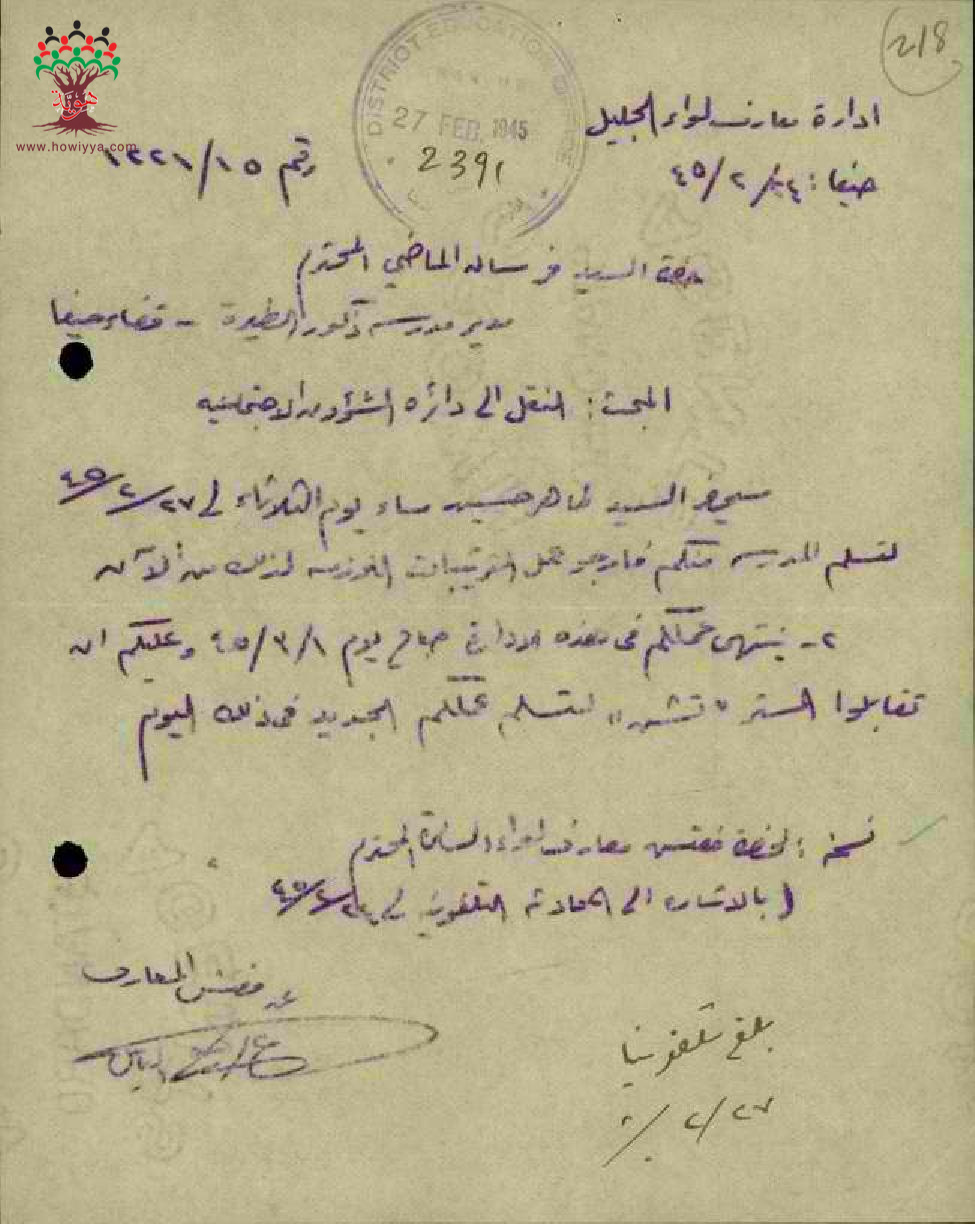 218
ادارة معارف لواء الجليل
حيفا : ٢٤/٢/٤٥
رقم ١٢٢١/١٥
DISTRICT
27 FEB. 1945
2391
حوية
www.howiyya.com
حضرة السيد الماضي المحترم
مدير مدرسة ذكور الطيرة - قضاء حيفا
المبحث : النقل الى دائرة الشؤون الاجتماعية
سيحضر السيد ظاهر حسين مساء يوم الثلاثاء في ٢٧/٢/٤٥
لتسلم المدرسة منكم فارجو عمل الترتيبات اللازمة لذلك من الآن
٢- ينتهي عملكم في هذه الادارة صباح يوم ١/٣/٤٥ وعليكم ان
تقابلوا المستر " " لتسلم عملكم الجديد في ذلك اليوم
نسخة : لحضرة مفتش معارف لواء السامرة المحترم
( بالاشارة الى المحادثة التلفونية في /٢/٤٥
عن مفتش المعارف
بلغ تلفونيا
٢٧/٢/